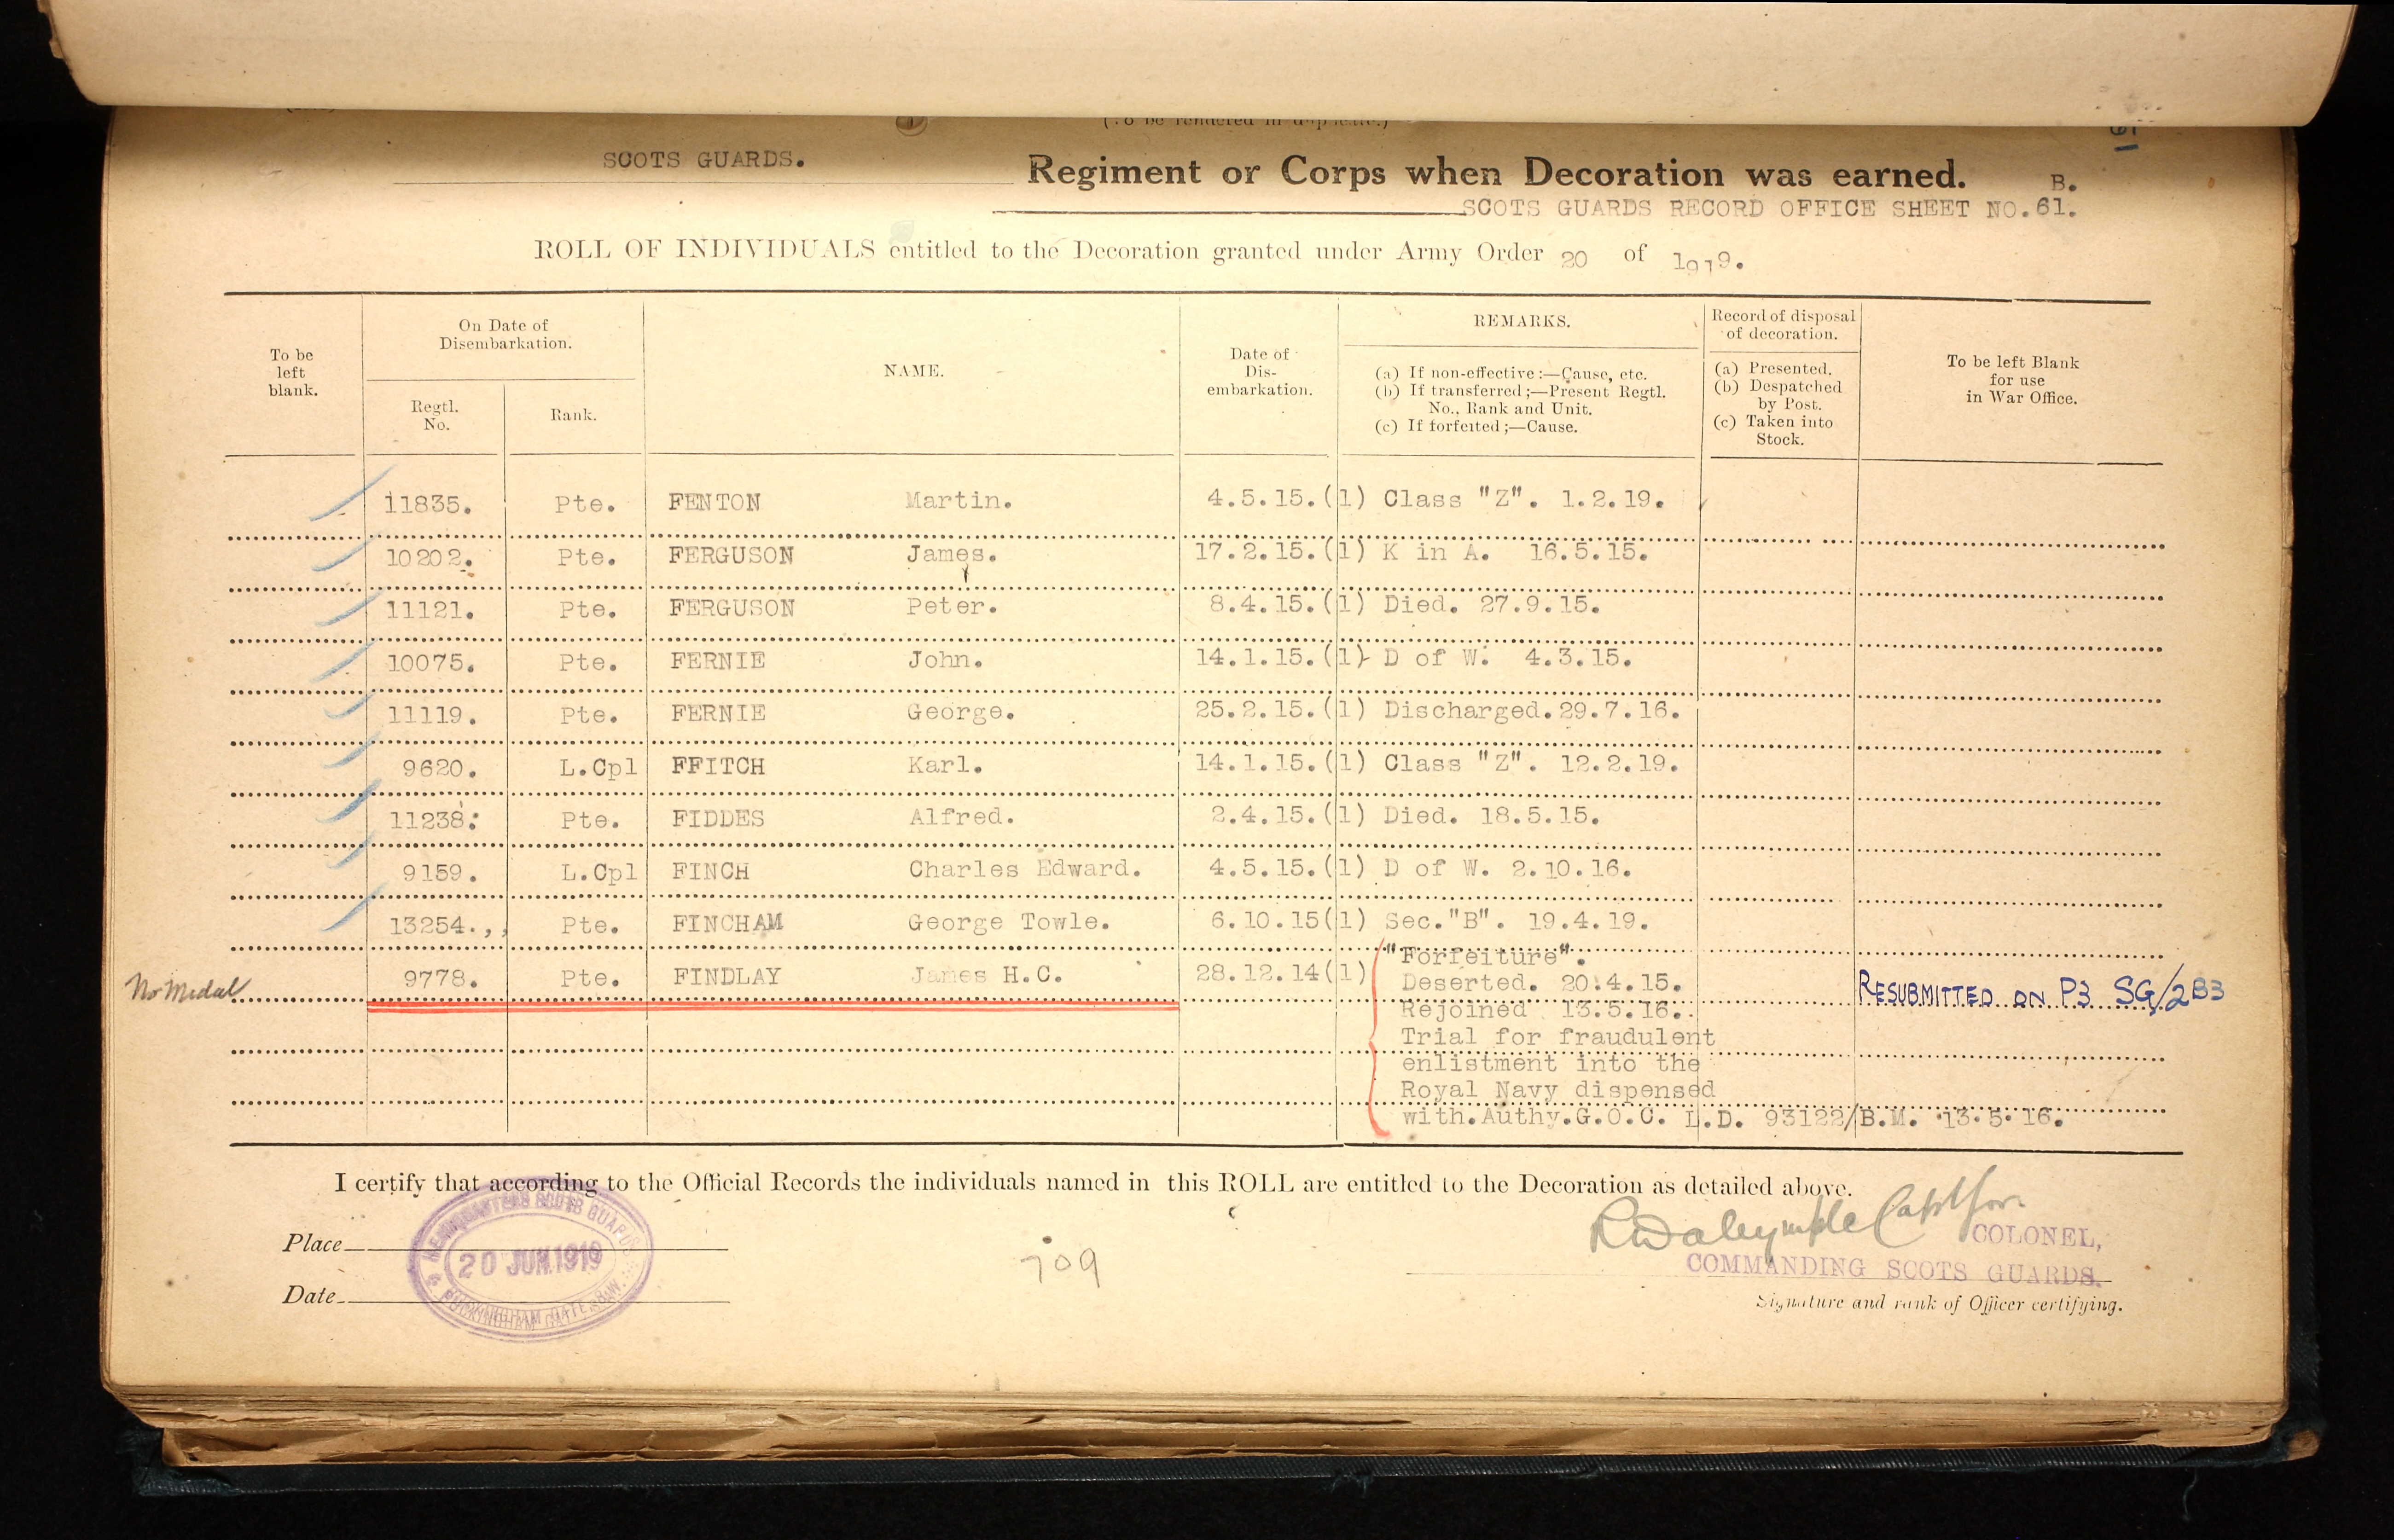 SCOTS GUARDS.
Regiment or Corps when Decoration was earned. B.
SCOTS GUARDS RECORD OFFICE SHEET NO.61.
ROLL OF INDIVIDUALS entitled to the Decoration granted under Army Order 20 of 1919.
To be left blank.
On Date of Disembarkation.
Regtl. No.
Rank.
NAME.
Date of Dis-embarkation.
REMARKS.
(a) If non-effective :—Cause, etc.
(b) If transferred ;—Present Regtl. No., Rank and Unit.
(c) If forfeited ;—Cause.
Record of disposal of decoration.
(a) Presented.
(b) Despatched by Post.
(c) Taken into Stock.
To be left Blank for use in War Office.
11835. Pte. FENTON Martin. 4.5.15.(1) Class "Z". 1.2.19.
10202. Pte. FERGUSON James. 17.2.15.(1) K in A. 16.5.15.
11121. Pte. FERGUSON Peter. 8.4.15.(1) Died. 27.9.15.
10075. Pte. FERNIE John. 14.1.15.(1) D of W. 4.3.15.
11119. Pte. FERNIE George. 25.2.15.(1) Discharged.29.7.16.
9620. L.Cpl FFITCH Karl. 14.1.15.(1) Class "Z". 12.2.19.
11238. Pte. FIDDES Alfred. 2.4.15.(1) Died. 18.5.15.
9159. L.Cpl FINCH Charles Edward. 4.5.15.(1) D of W. 2.10.16.
13254.,, Pte. FINCHAM George Towle. 6.10.15(1) Sec."B". 19.4.19.
No Medal 9778. Pte. FINDLAY James H.C. 28.12.14(1) "Forfeiture".
Deserted. 20.4.15. RESUBMITTED ON P3 SG/2B3
Rejoined 13.5.16.
Trial for fraudulent
enlistment into the
Royal Navy dispensed
with.Authy.G.O.C. L.D. 93122/B.M. 13.5.16.
I certify that according to the Official Records the individuals named in this ROLL are entitled to the Decoration as detailed above.
HEADQUARTERS SCOTS GUARDS
20 JUN.1919
BUCKINGHAM GATE S.W.
Place
Date
709
COLONEL,
COMMANDING SCOTS GUARDS.
Signature and rank of Officer certifying.